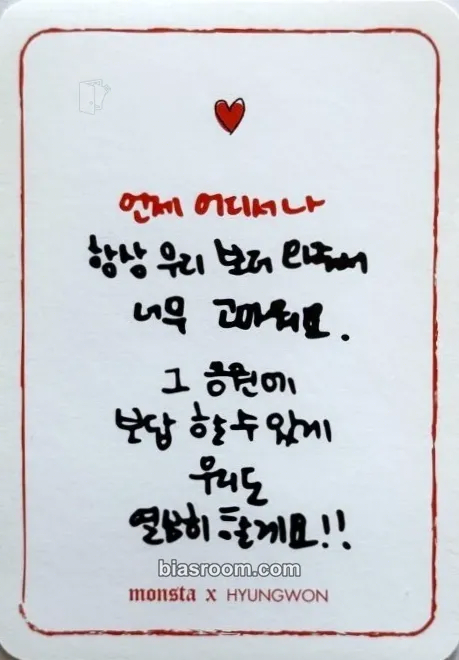 언제 어디서나
항상 우리 보러 와줘서
너무 고마워요.
그 응원에
보답 할 수 있게
우리도
열심히 할게요!!
biasroom.com
monsta x HYUNGWON